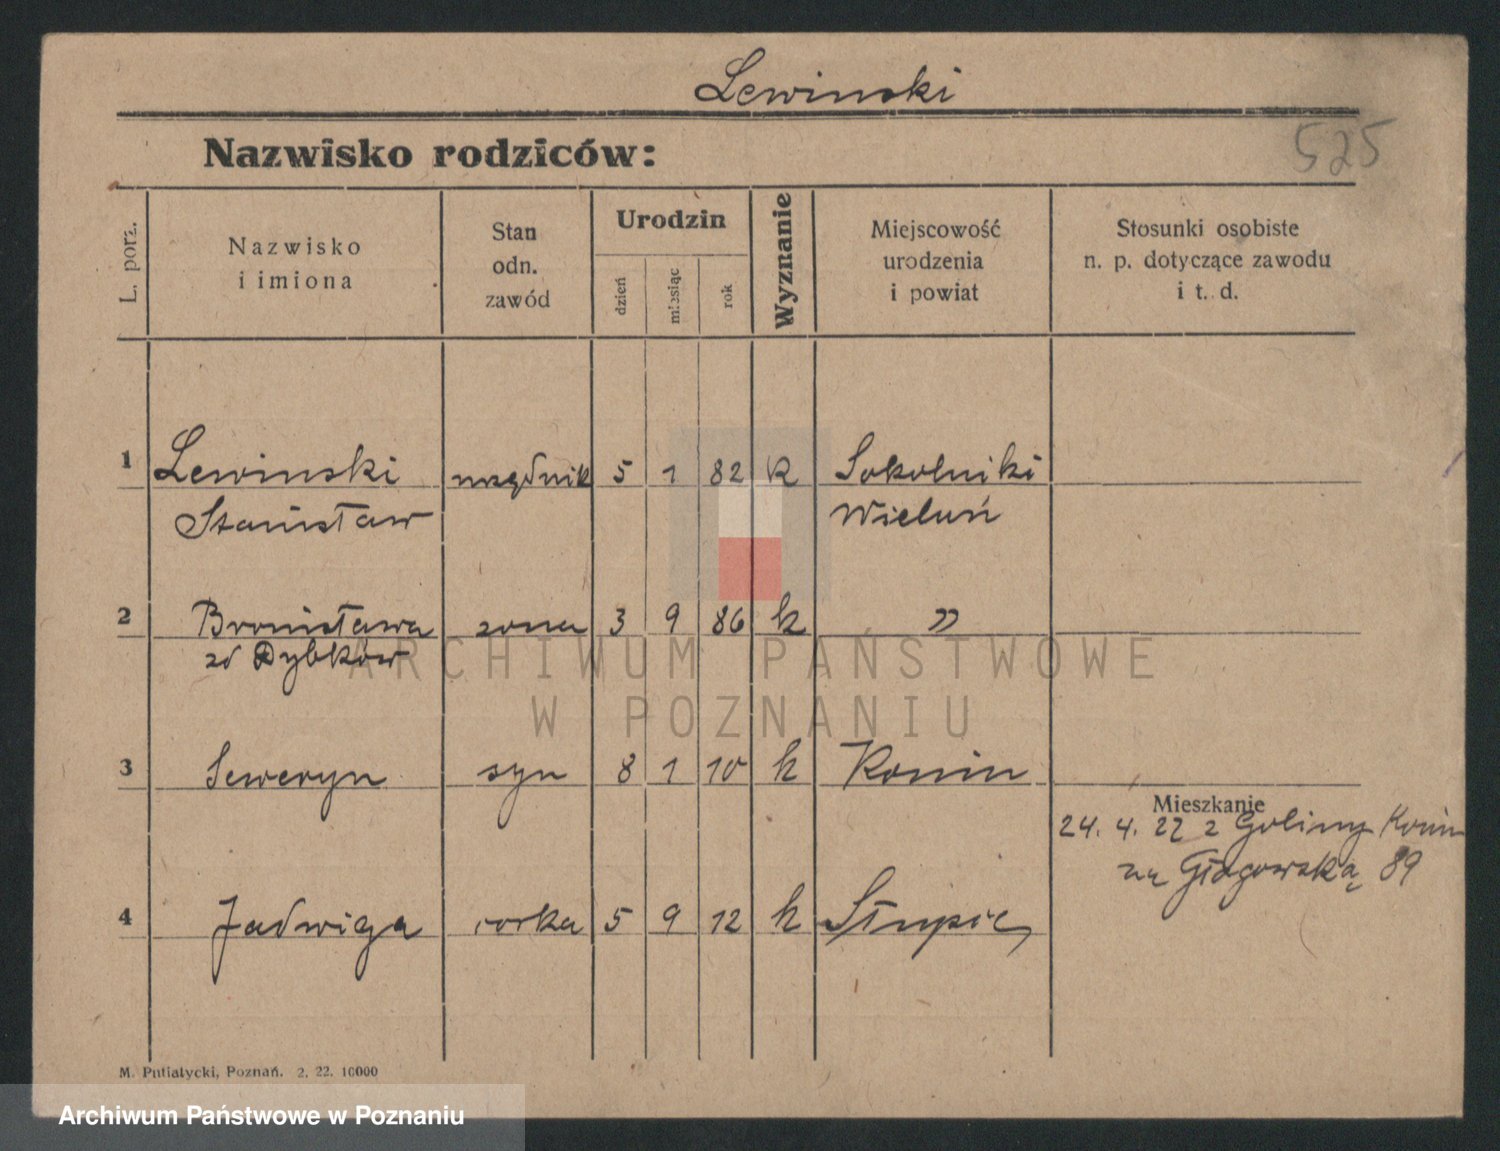 Lewinski
525
Nazwisko rodziców:
L. porz.
Nazwisko
i imiona
Stan
odn.
zawód
Urodzin
dzień
miesiąc
rok
Wyznanie
Miejscowość
urodzenia
i powiat
Stosunki osobiste
n. p. dotyczące zawodu
i t. d.
1 Lewinski urzędnik 5 1 82 k Sokolniki
Stanisław Wieluń
2 Bronisława zona 3 9 86 k "
zd Dybków
3 Seweryn syn 8 1 10 k Konin
Mieszkanie
24. 4. 22 z Goliny Konin
na Głogowską 89
4 Jadwiga corka 5 9 12 k Słupic
M. Putiatycki, Poznań. 2. 22. 10000
ARCHIWUM PAŃSTWOWE
W POZNANIU
Archiwum Państwowe w Poznaniu